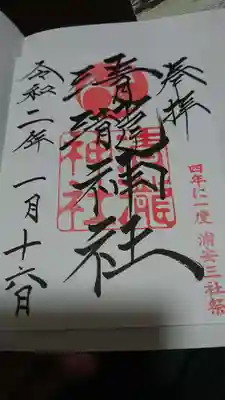 奉拝
四年に一度 浦安三社祭
清瀧神社
清瀧
神社
令和二年一月十六日